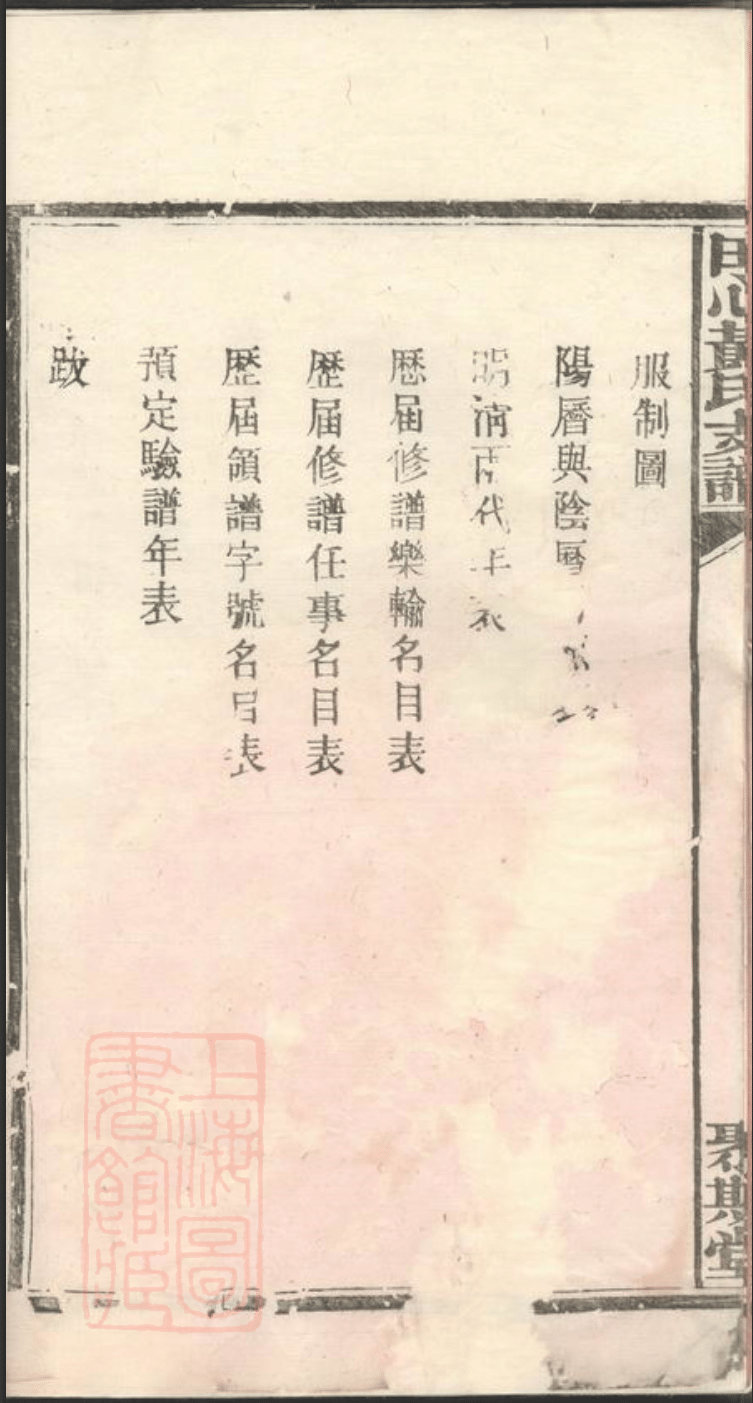 黃氏支譜
服制圖
陽曆與陰曆
清兩代年表
歷屆修譜樂輸名目表
歷屆修譜任事名目表
歷屆領譜字號名目表
預定驗譜年表
跋
聚斯堂
上海圖書館藏